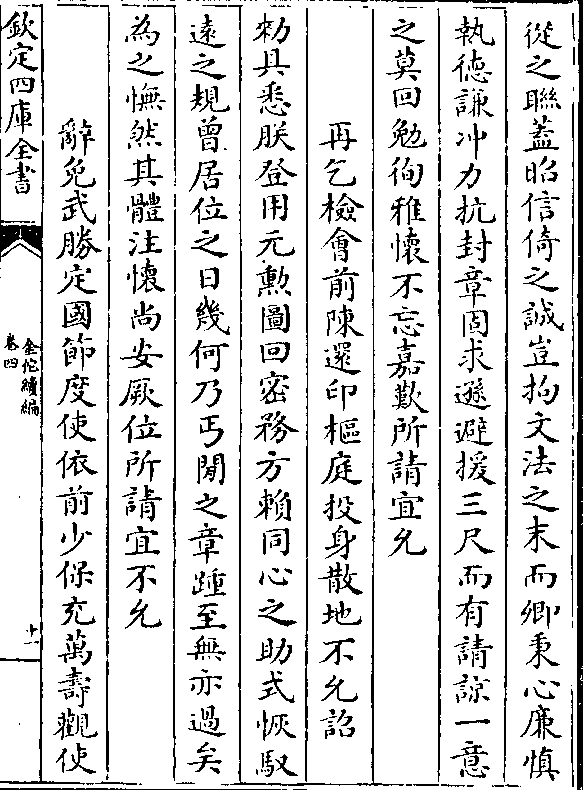 從之聯蓋昭信倚之誠豈拘文法之末而卿秉心廉慎
執德謙冲力抗封章固求遜避援三尺而有請諒一意
之莫回勉徇雅懷不忘嘉歎所請宜允
再乞檢會前陳還印樞庭投身散地不允詔
勑具悉朕登用元勲圖回密務方賴同心之助式恢馭
逺之規曾居位之日幾何乃丐閒之章踵至無亦過矣
為之憮然其體注懷尚安厥位所請宜不允
辭免武勝定國節度使依前少保充萬壽觀使
欽定四庫全書
金佗續編
卷四
十一